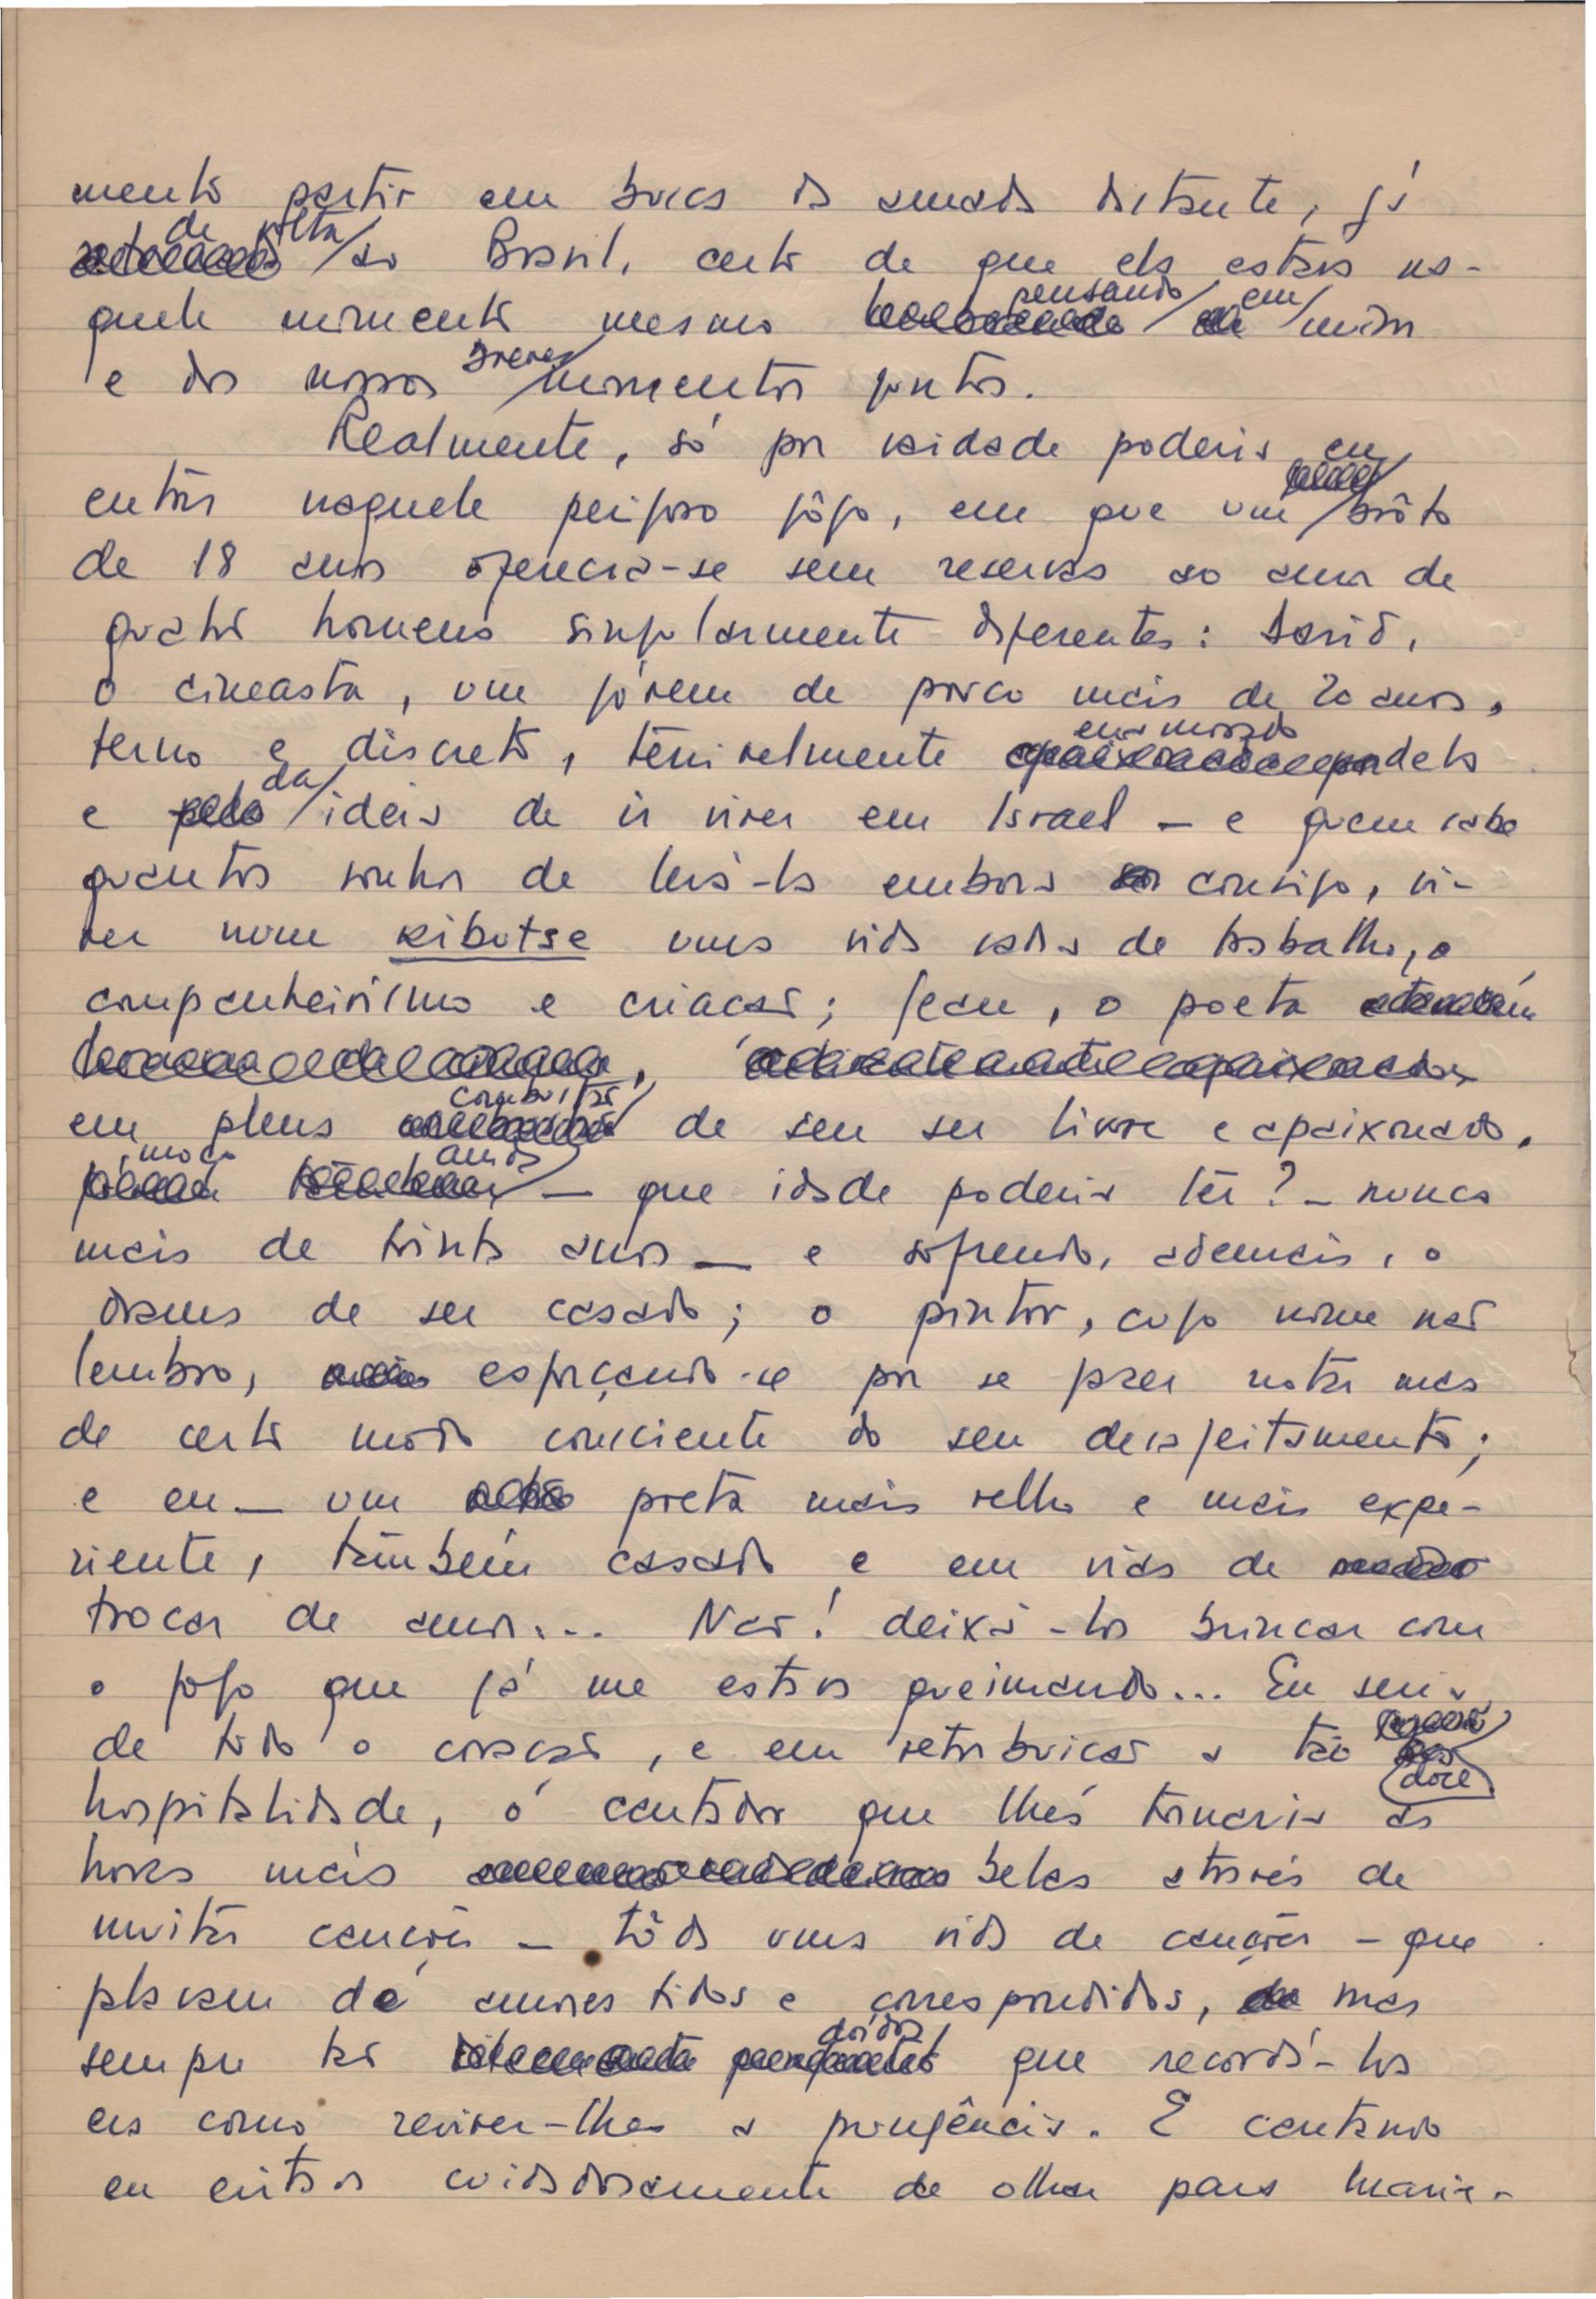 mento partir em busca da amada distante, já
de volta ao Brasil, certo de que ela estava na-
quele momento mesmo pensando em mim
e dos nossos breves momentos juntos.
Realmente, só por vaidade poderia eu
entrar naquele perigoso jôgo, em que um brôto
de 18 anos oferecia-se sem reservas ao amor de
quatro homens singularmente diferentes: David,
o cineasta, um jóvem de pouco mais de 20 anos,
terno e discreto, terrivelmente enamorado dela
e da idéia de ir viver em Israel — e quem sabe
quantos sonhos de levá-la embora consigo, vi-
ver num kibutse uma vida sadia de trabalho,
companheirismo e criação; Jean, o poeta
em plena combustão de seu ser livre e apaixonado,
moço ainda — que idade poderia ter? — nunca
mais de trinta anos — e sofrendo, ademais, o
drama de ser casado; o pintor, cujo nome não
lembro, esforçando-se por se fazer notar mas
de certo modo consciente do seu desajeitamento;
e eu — um poeta mais velho e mais expe-
riente, também casado e em vias de
trocar de amor... Não! deixá-los brincar com
o fogo que já me estava queimando... Eu seria,
de todo o coração, e em retribuição a tão doce
hospitalidade, o cantador que lhes tornaria as
horas mais belas através de
muitas canções — tôda uma vida de canções — que
falavam de amores tidos e correspondidos, mas
sempre tão doídos que recordá-los
era como reviver-lhes a pungência. E cantando
eu evitava cuidadosamente de olhar para Marie-